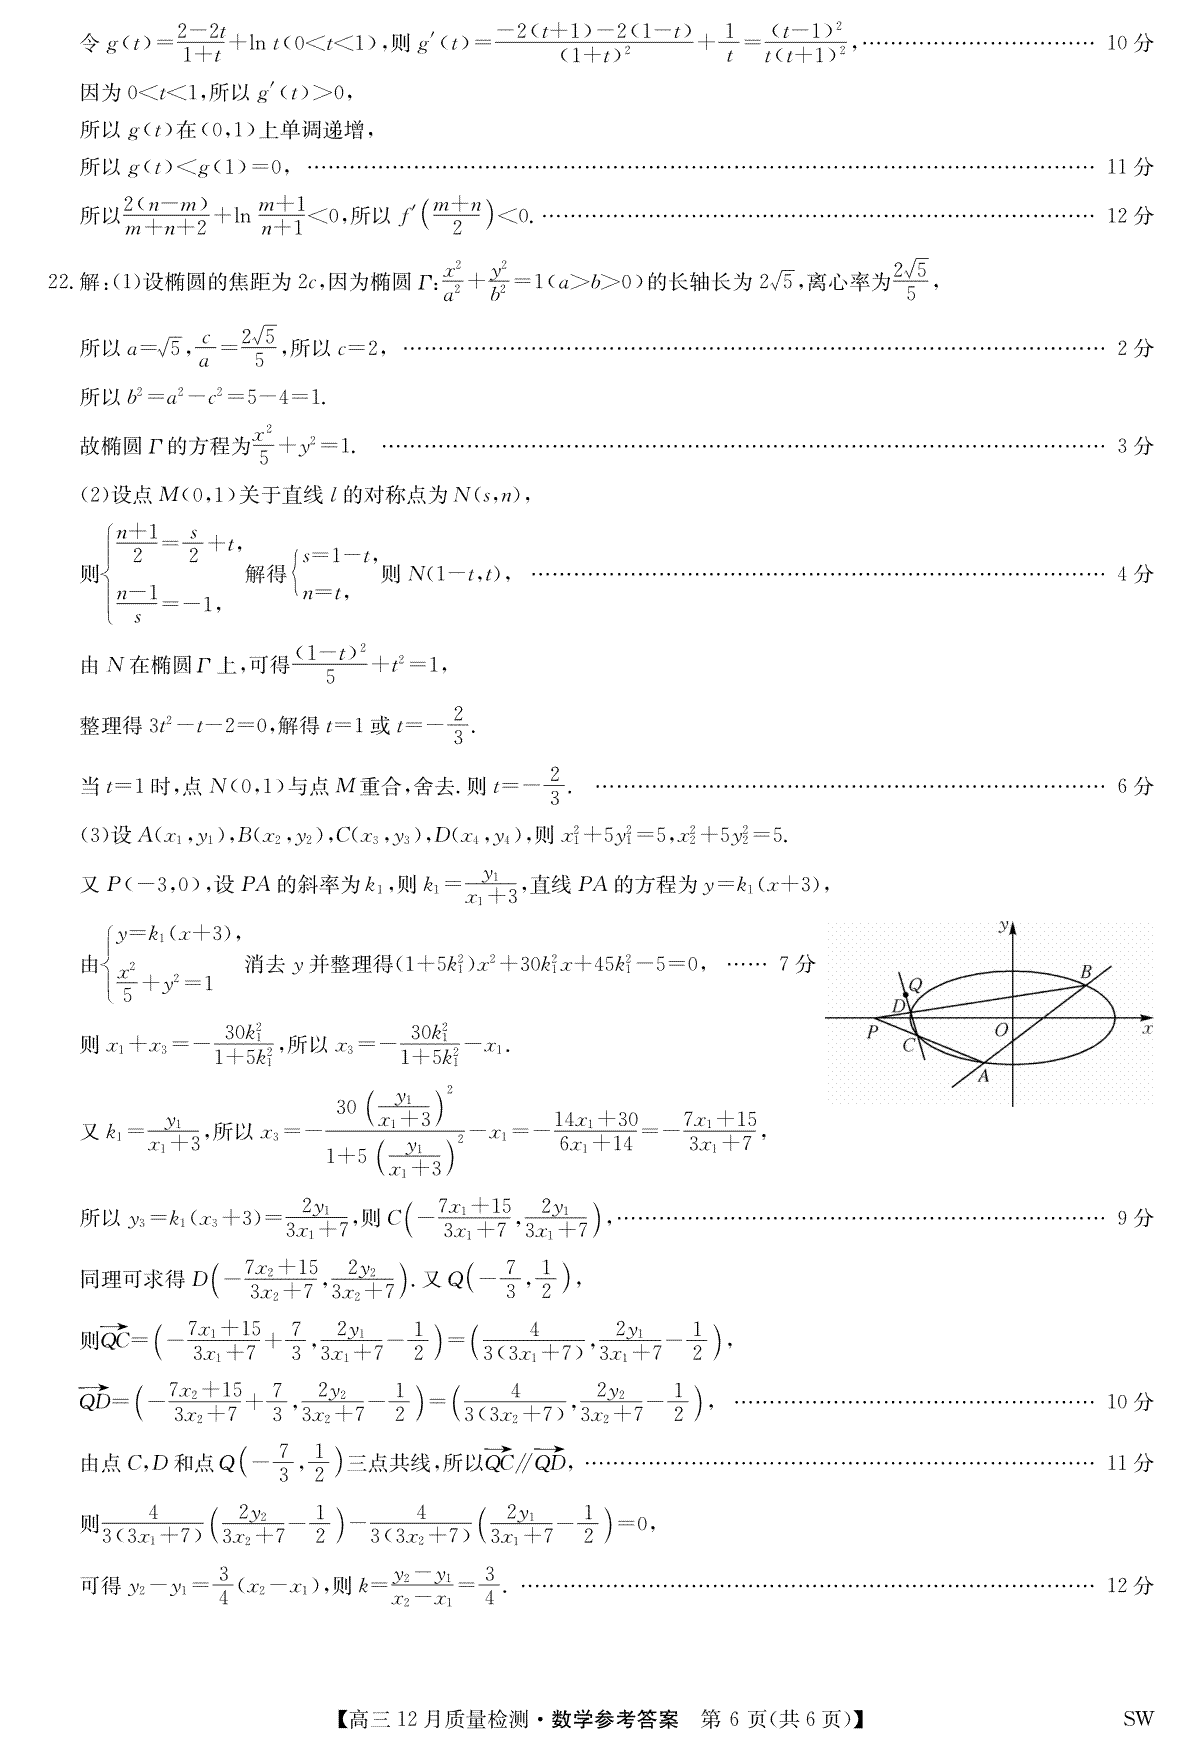 令 g(t)=\frac{2-2t}{1+t}+ln t(0<t<1),则 g′(t)=\frac{-2(t+1)-2(1-t)}{(1+t)^2}+\frac{1}{t}=\frac{(t-1)^2}{t(t+1)^2},…………………………… 10 分
因为 0<t<1,所以 g′(t)>0,
所以 g(t)在(0,1)上单调递增,
所以 g(t)<g(1)=0, …………………………… 11 分
所以\frac{2(n-m)}{m+n+2}+ln \frac{m+1}{n+1}<0,所以 f′(\frac{m+n}{2})<0. …………………………… 12 分
22. 解:(1)设椭圆的焦距为 2c,因为椭圆 Γ:\frac{x^2}{a^2}+\frac{y^2}{b^2}=1(a>b>0)的长轴长为 2√5,离心率为\frac{2√5}{5},
所以 a=√5,\frac{c}{a}=\frac{2√5}{5},所以 c=2, …………………………… 2 分
所以 b²=a²-c²=5-4=1.
故椭圆 Γ 的方程为\frac{x^2}{5}+y²=1. …………………………… 3 分
(2)设点 M(0,1)关于直线 l 的对称点为 N(s,n),
则{\frac{n+1}{2}=\frac{s}{2}+t, \frac{n-1}{s}=-1, 解得{s=1-t, n=t, 则 N(1-t,t), …………………………… 4 分
由 N 在椭圆 Γ 上,可得\frac{(1-t)^2}{5}+t²=1,
整理得 3t²-t-2=0,解得 t=1 或 t=-\frac{2}{3}.
当 t=1 时,点 N(0,1)与点 M 重合,舍去. 则 t=-\frac{2}{3}. …………………………… 6 分
(3)设 A(x₁,y₁),B(x₂,y₂),C(x₃,y₃),D(x₄,y₄),则 x₁²+5y₁²=5,x₂²+5y₂²=5.
又 P(-3,0),设 PA 的斜率为 k₁,则 k₁=\frac{y₁}{x₁+3},直线 PA 的方程为 y=k₁(x+3),
由{y=k₁(x+3), \frac{x^2}{5}+y²=1 消去 y 并整理得(1+5k₁²)x²+30k₁²x+45k₁²-5=0, …… 7 分
则 x₁+x₃=-\frac{30k₁²}{1+5k₁²},所以 x₃=-\frac{30k₁²}{1+5k₁²}-x₁.
又 k₁=\frac{y₁}{x₁+3},所以 x₃=-\frac{30(\frac{y₁}{x₁+3})^2}{1+5(\frac{y₁}{x₁+3})^2}-x₁=-\frac{14x₁+30}{6x₁+14}=-\frac{7x₁+15}{3x₁+7},
y
Q
B
D
P
O
x
C
A
所以 y₃=k₁(x₃+3)=\frac{2y₁}{3x₁+7},则 C(-\frac{7x₁+15}{3x₁+7},\frac{2y₁}{3x₁+7}),…………………………… 9 分
同理可求得 D(-\frac{7x₂+15}{3x₂+7},\frac{2y₂}{3x₂+7}). 又 Q(-\frac{7}{3},\frac{1}{2}),
则\overrightarrow{QC}=(-\frac{7x₁+15}{3x₁+7}+\frac{7}{3},\frac{2y₁}{3x₁+7}-\frac{1}{2})=(\frac{4}{3(3x₁+7)},\frac{2y₁}{3x₁+7}-\frac{1}{2}),
\overrightarrow{QD}=(-\frac{7x₂+15}{3x₂+7}+\frac{7}{3},\frac{2y₂}{3x₂+7}-\frac{1}{2})=(\frac{4}{3(3x₂+7)},\frac{2y₂}{3x₂+7}-\frac{1}{2}), …………………………… 10 分
由点 C,D 和点 Q(-\frac{7}{3},\frac{1}{2})三点共线,所以\overrightarrow{QC}∥\overrightarrow{QD}, …………………………… 11 分
则\frac{4}{3(3x₁+7)}(\frac{2y₂}{3x₂+7}-\frac{1}{2})-\frac{4}{3(3x₂+7)}(\frac{2y₁}{3x₁+7}-\frac{1}{2})=0,
可得 y₂-y₁=\frac{3}{4}(x₂-x₁),则 k=\frac{y₂-y₁}{x₂-x₁}=\frac{3}{4}. …………………………… 12 分
【高三 12 月质量检测·数学参考答案 第 6 页(共 6 页)】 SW